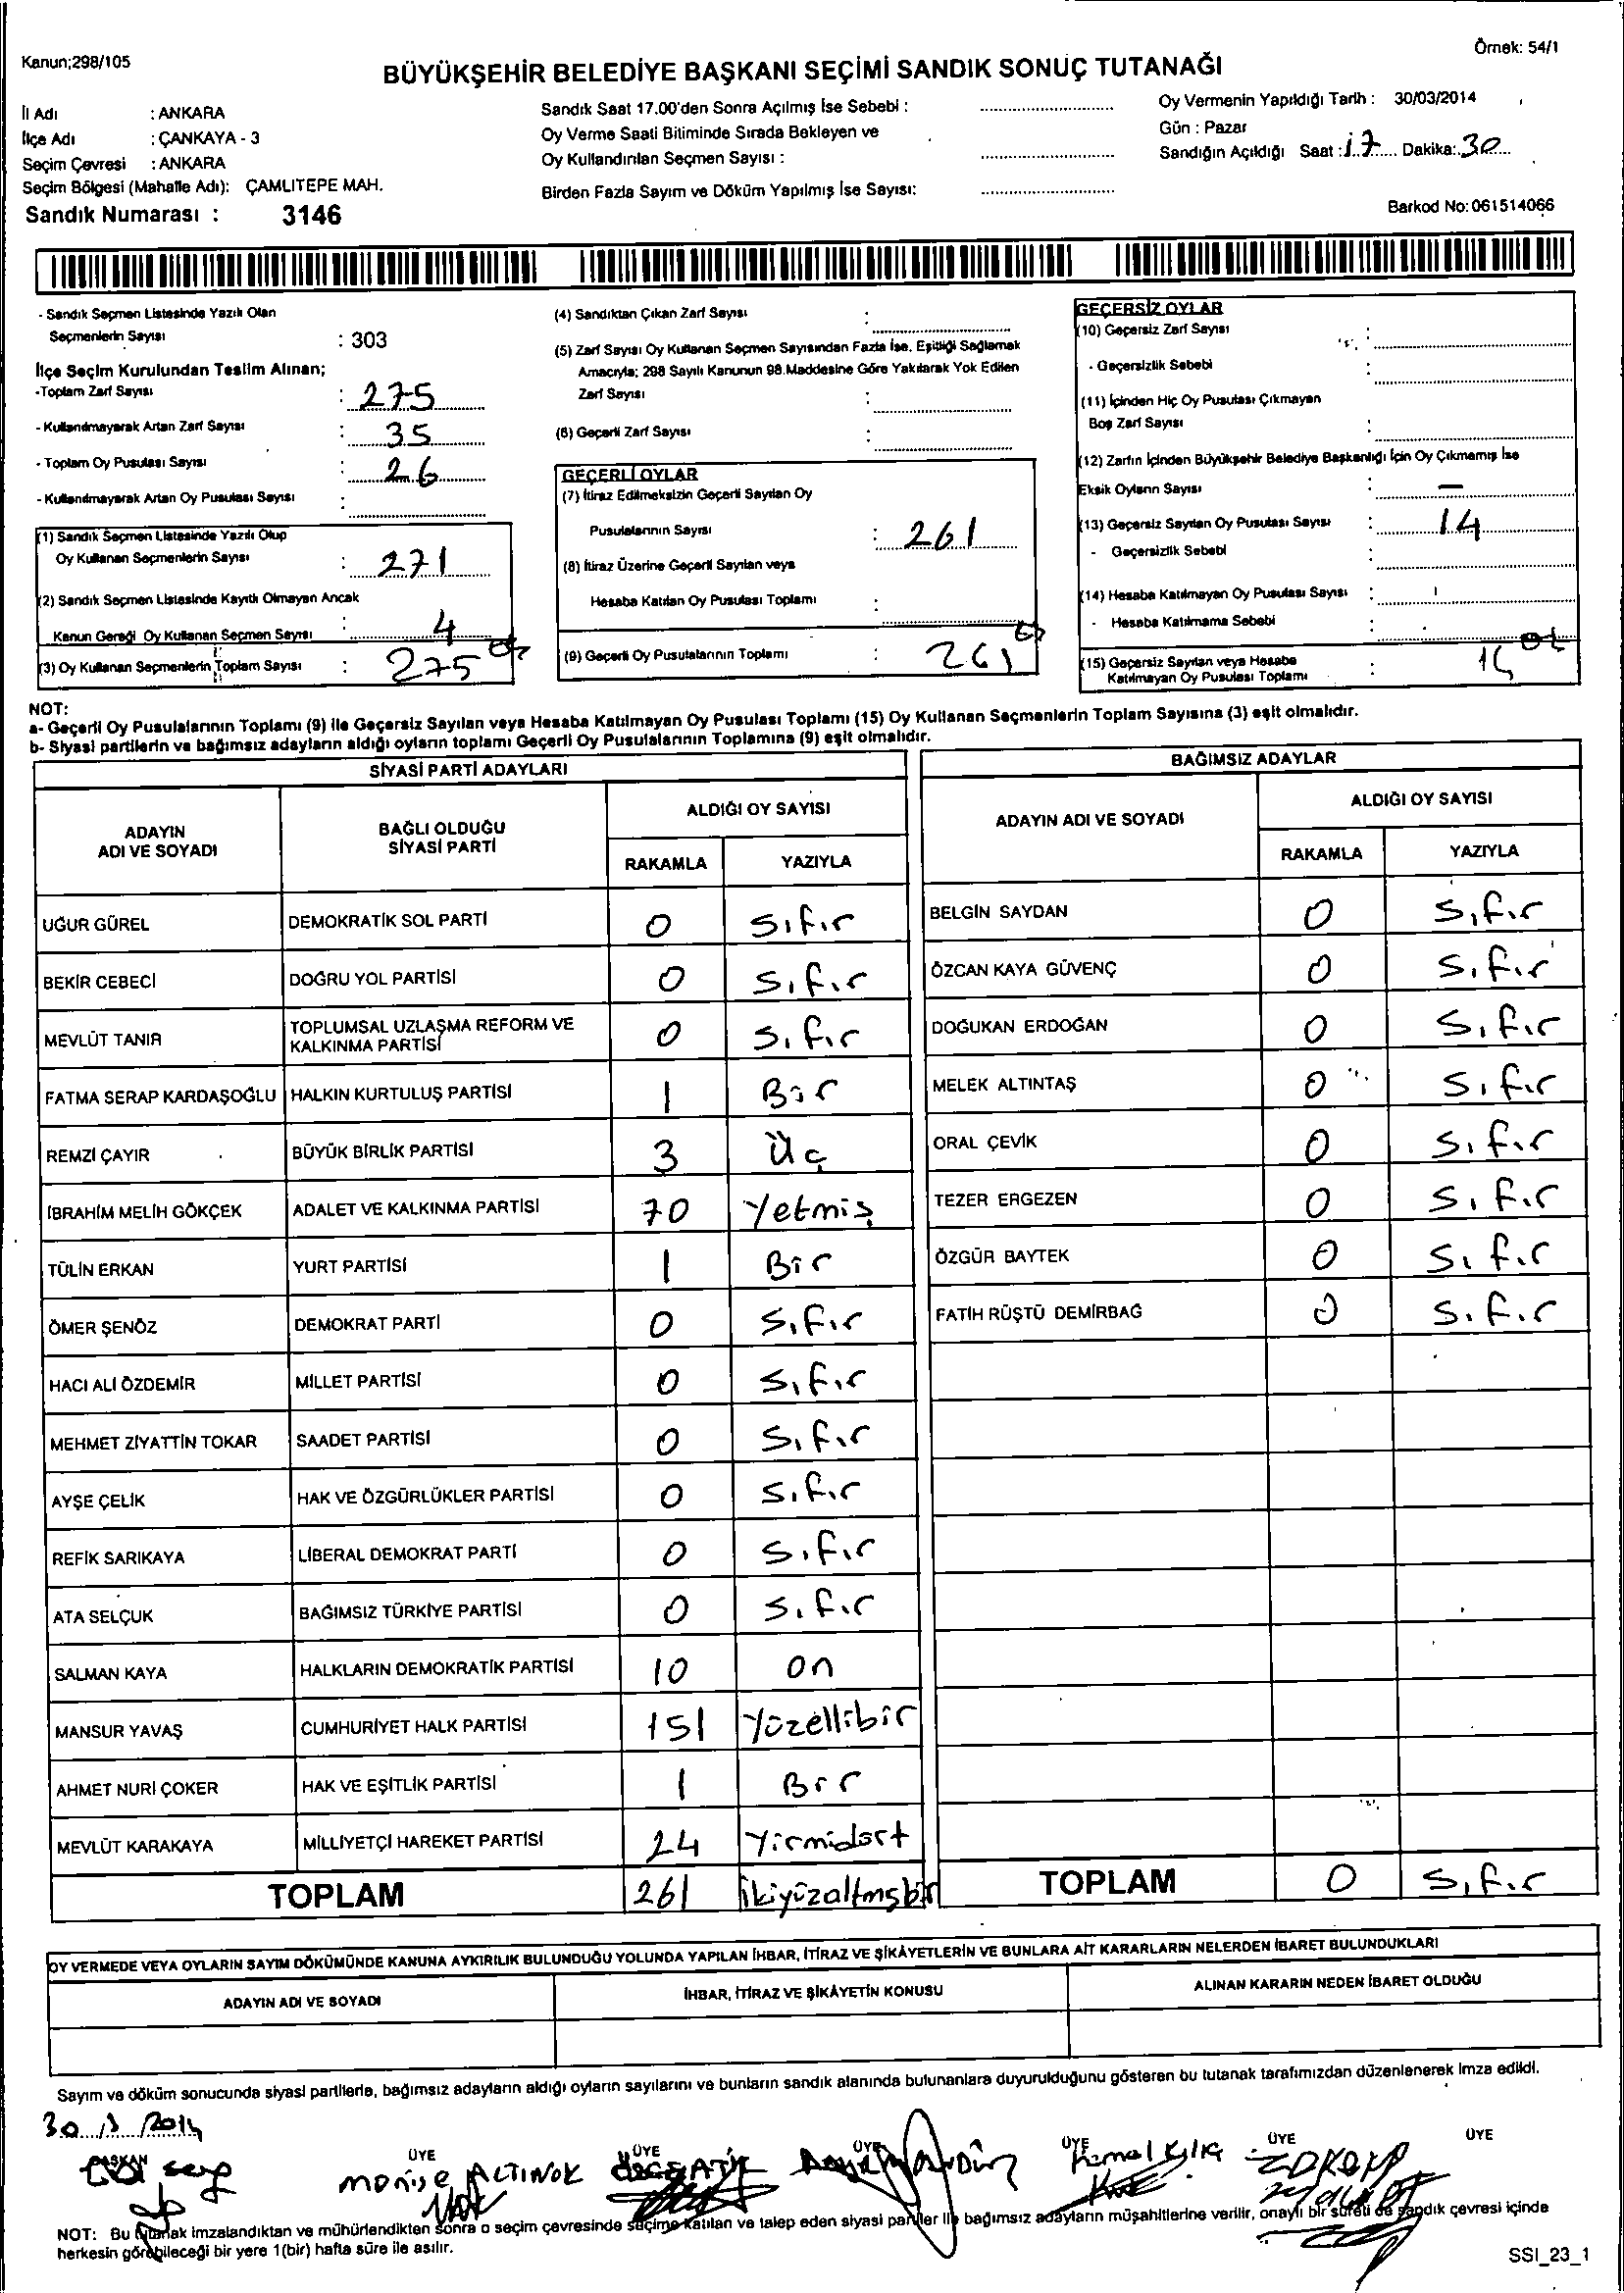 Kanun;298/105
Örnek: 54/1
BÜYÜKŞEHİR BELEDİYE BAŞKANI SEÇİMİ SANDIK SONUÇ TUTANAĞI
İl Adı : ANKARA
İlçe Adı : ÇANKAYA - 3
Seçim Çevresi : ANKARA
Seçim Bölgesi (Mahalle Adı): ÇAMLITEPE MAH.
Sandık Numarası : 3146
Sandık Saat 17.00'den Sonra Açılmış İse Sebebi :
Oy Verme Saati Bitiminde Sırada Bekleyen ve
Oy Kullandırılan Seçmen Sayısı :
Birden Fazla Sayım ve Döküm Yapılmış İse Sayısı:
Oy Vermenin Yapıldığı Tarih : 30/03/2014
Gün : Pazar
Sandığın Açıldığı Saat : 17 Dakika: 30
Barkod No: 061514066
- Sandık Seçmen Listesinde Yazılı Olan
Seçmenlerin Sayısı : 303
İlçe Seçim Kurulundan Teslim Alınan;
-Toplam Zarf Sayısı : 275
- Kullanılmayarak Artan Zarf Sayısı : 35
- Toplam Oy Pusulası Sayısı : 26
- Kullanılmayarak Artan Oy Pusulası Sayısı :
(1) Sandık Seçmen Listesinde Yazılı Olup
Oy Kullanan Seçmenlerin Sayısı : 271
(2) Sandık Seçmen Listesinde Kayıtlı Olmayan Ancak
Kanun Gereği Oy Kullanan Seçmen Sayısı : 4
(3) Oy Kullanan Seçmenlerin Toplam Sayısı : 275
(4) Sandıktan Çıkan Zarf Sayısı :
(5) Zarf Sayısı Oy Kullanan Seçmen Sayısından Fazla İse, Eşitliği Sağlamak
Amacıyla; 298 Sayılı Kanunun 98.Maddesine Göre Yakılarak Yok Edilen
Zarf Sayısı :
(6) Geçerli Zarf Sayısı :
GEÇERLİ OYLAR
(7) İtiraz Edilmeksizin Geçerli Sayılan Oy
Pusulalarının Sayısı : 261
(8) İtiraz Üzerine Geçerli Sayılan veya
Hesaba Katılan Oy Pusulası Toplamı :
(9) Geçerli Oy Pusulalarının Toplamı : 261
GEÇERSİZ OYLAR
(10) Geçersiz Zarf Sayısı :
- Geçersizlik Sebebi :
(11) İçinden Hiç Oy Pusulası Çıkmayan
Boş Zarf Sayısı :
(12) Zarfın İçinden Büyükşehir Belediye Başkanlığı İçin Oy Çıkmamış İse
Eksik Oyların Sayısı : —
(13) Geçersiz Sayılan Oy Pusulası Sayısı : 14
- Geçersizlik Sebebi :
(14) Hesaba Katılmayan Oy Pusulası Sayısı :
- Hesaba Katılmama Sebebi :
(15) Geçersiz Sayılan veya Hesaba
Katılmayan Oy Pusulası Toplamı : 14
NOT:
a- Geçerli Oy Pusulalarının Toplamı (9) ile Geçersiz Sayılan veya Hesaba Katılmayan Oy Pusulası Toplamı (15) Oy Kullanan Seçmenlerin Toplam Sayısına (3) eşit olmalıdır.
b- Siyasi partilerin ve bağımsız adayların aldığı oyların toplamı Geçerli Oy Pusulalarının Toplamına (9) eşit olmalıdır.
SİYASİ PARTİ ADAYLARI
ADAYIN ADI VE SOYADI BAĞLI OLDUĞU SİYASİ PARTİ ALDIĞI OY SAYISI
RAKAMLA YAZIYLA
UĞUR GÜREL DEMOKRATİK SOL PARTİ 0 Sıfır
BEKİR CEBECİ DOĞRU YOL PARTİSİ 0 Sıfır
MEVLÜT TANIR TOPLUMSAL UZLAŞMA REFORM VE KALKINMA PARTİSİ 0 Sıfır
FATMA SERAP KARDAŞOĞLU HALKIN KURTULUŞ PARTİSİ 1 Bir
REMZİ ÇAYIR BÜYÜK BİRLİK PARTİSİ 3 Üç
İBRAHİM MELİH GÖKÇEK ADALET VE KALKINMA PARTİSİ 70 Yetmiş
TÜLİN ERKAN YURT PARTİSİ 1 Bir
ÖMER ŞENÖZ DEMOKRAT PARTİ 0 Sıfır
HACI ALİ ÖZDEMİR MİLLET PARTİSİ 0 Sıfır
MEHMET ZİYATTİN TOKAR SAADET PARTİSİ 0 Sıfır
AYŞE ÇELİK HAK VE ÖZGÜRLÜKLER PARTİSİ 0 Sıfır
REFİK SARIKAYA LİBERAL DEMOKRAT PARTİ 0 Sıfır
ATA SELÇUK BAĞIMSIZ TÜRKİYE PARTİSİ 0 Sıfır
SALMAN KAYA HALKLARIN DEMOKRATİK PARTİSİ 10 on
MANSUR YAVAŞ CUMHURİYET HALK PARTİSİ 151 Yüzellibir
AHMET NURİ ÇOKER HAK VE EŞİTLİK PARTİSİ 1 Bir
MEVLÜT KARAKAYA MİLLİYETÇİ HAREKET PARTİSİ 24 Yirmidört
TOPLAM 261 ikiyüzaltmışbir
BAĞIMSIZ ADAYLAR
ADAYIN ADI VE SOYADI ALDIĞI OY SAYISI
RAKAMLA YAZIYLA
BELGİN SAYDAN 0 Sıfır
ÖZCAN KAYA GÜVENÇ 0 Sıfır
DOĞUKAN ERDOĞAN 0 Sıfır
MELEK ALTINTAŞ 0 Sıfır
ORAL ÇEVİK 0 Sıfır
TEZER ERGEZEN 0 Sıfır
ÖZGÜR BAYTEK 0 Sıfır
FATİH RÜŞTÜ DEMİRBAĞ 0 Sıfır
TOPLAM 0 Sıfır
OY VERMEDE VEYA OYLARIN SAYIM DÖKÜMÜNDE KANUNA AYKIRILIK BULUNDUĞU YOLUNDA YAPILAN İHBAR, İTİRAZ VE ŞİKÂYETLERİN VE BUNLARA AİT KARARLARIN NELERDEN İBARET BULUNDUKLARI
ADAYIN ADI VE SOYADI İHBAR, İTİRAZ VE ŞİKÂYETİN KONUSU ALINAN KARARIN NEDEN İBARET OLDUĞU
Sayım ve döküm sonucunda siyasi partilerle, bağımsız adayların aldığı oyların sayılarını ve bunların sandık alanında bulunanlara duyurulduğunu gösteren bu tutanak tarafımızdan düzenlenerek imza edildi.
30 /3 /2014
BAŞKAN ÜYE ÜYE ÜYE ÜYE ÜYE ÜYE
ALTINOK Kemal Kılıç
NOT: Bu tutanak imzalandıktan ve mühürlendikten sonra o seçim çevresinde seçime katılan ve talep eden siyasi partiler ile bağımsız adayların müşahitlerine verilir, onaylı bir sureti de sandık çevresi içinde
herkesin görebileceği bir yere 1(bir) hafta süre ile asılır.
SSI_23_1